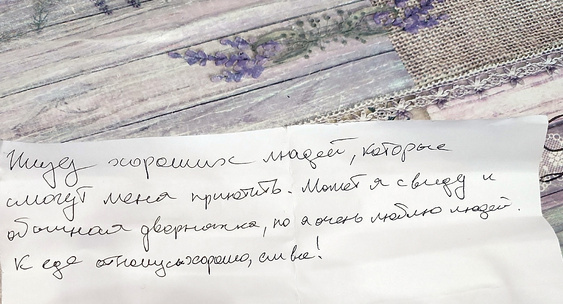 Ищу хороших людей, которые
смогут меня приютить. Может я с виду и
обычная дворняжка, но я очень люблю людей.
К еде отношусь хорошо, ем все!